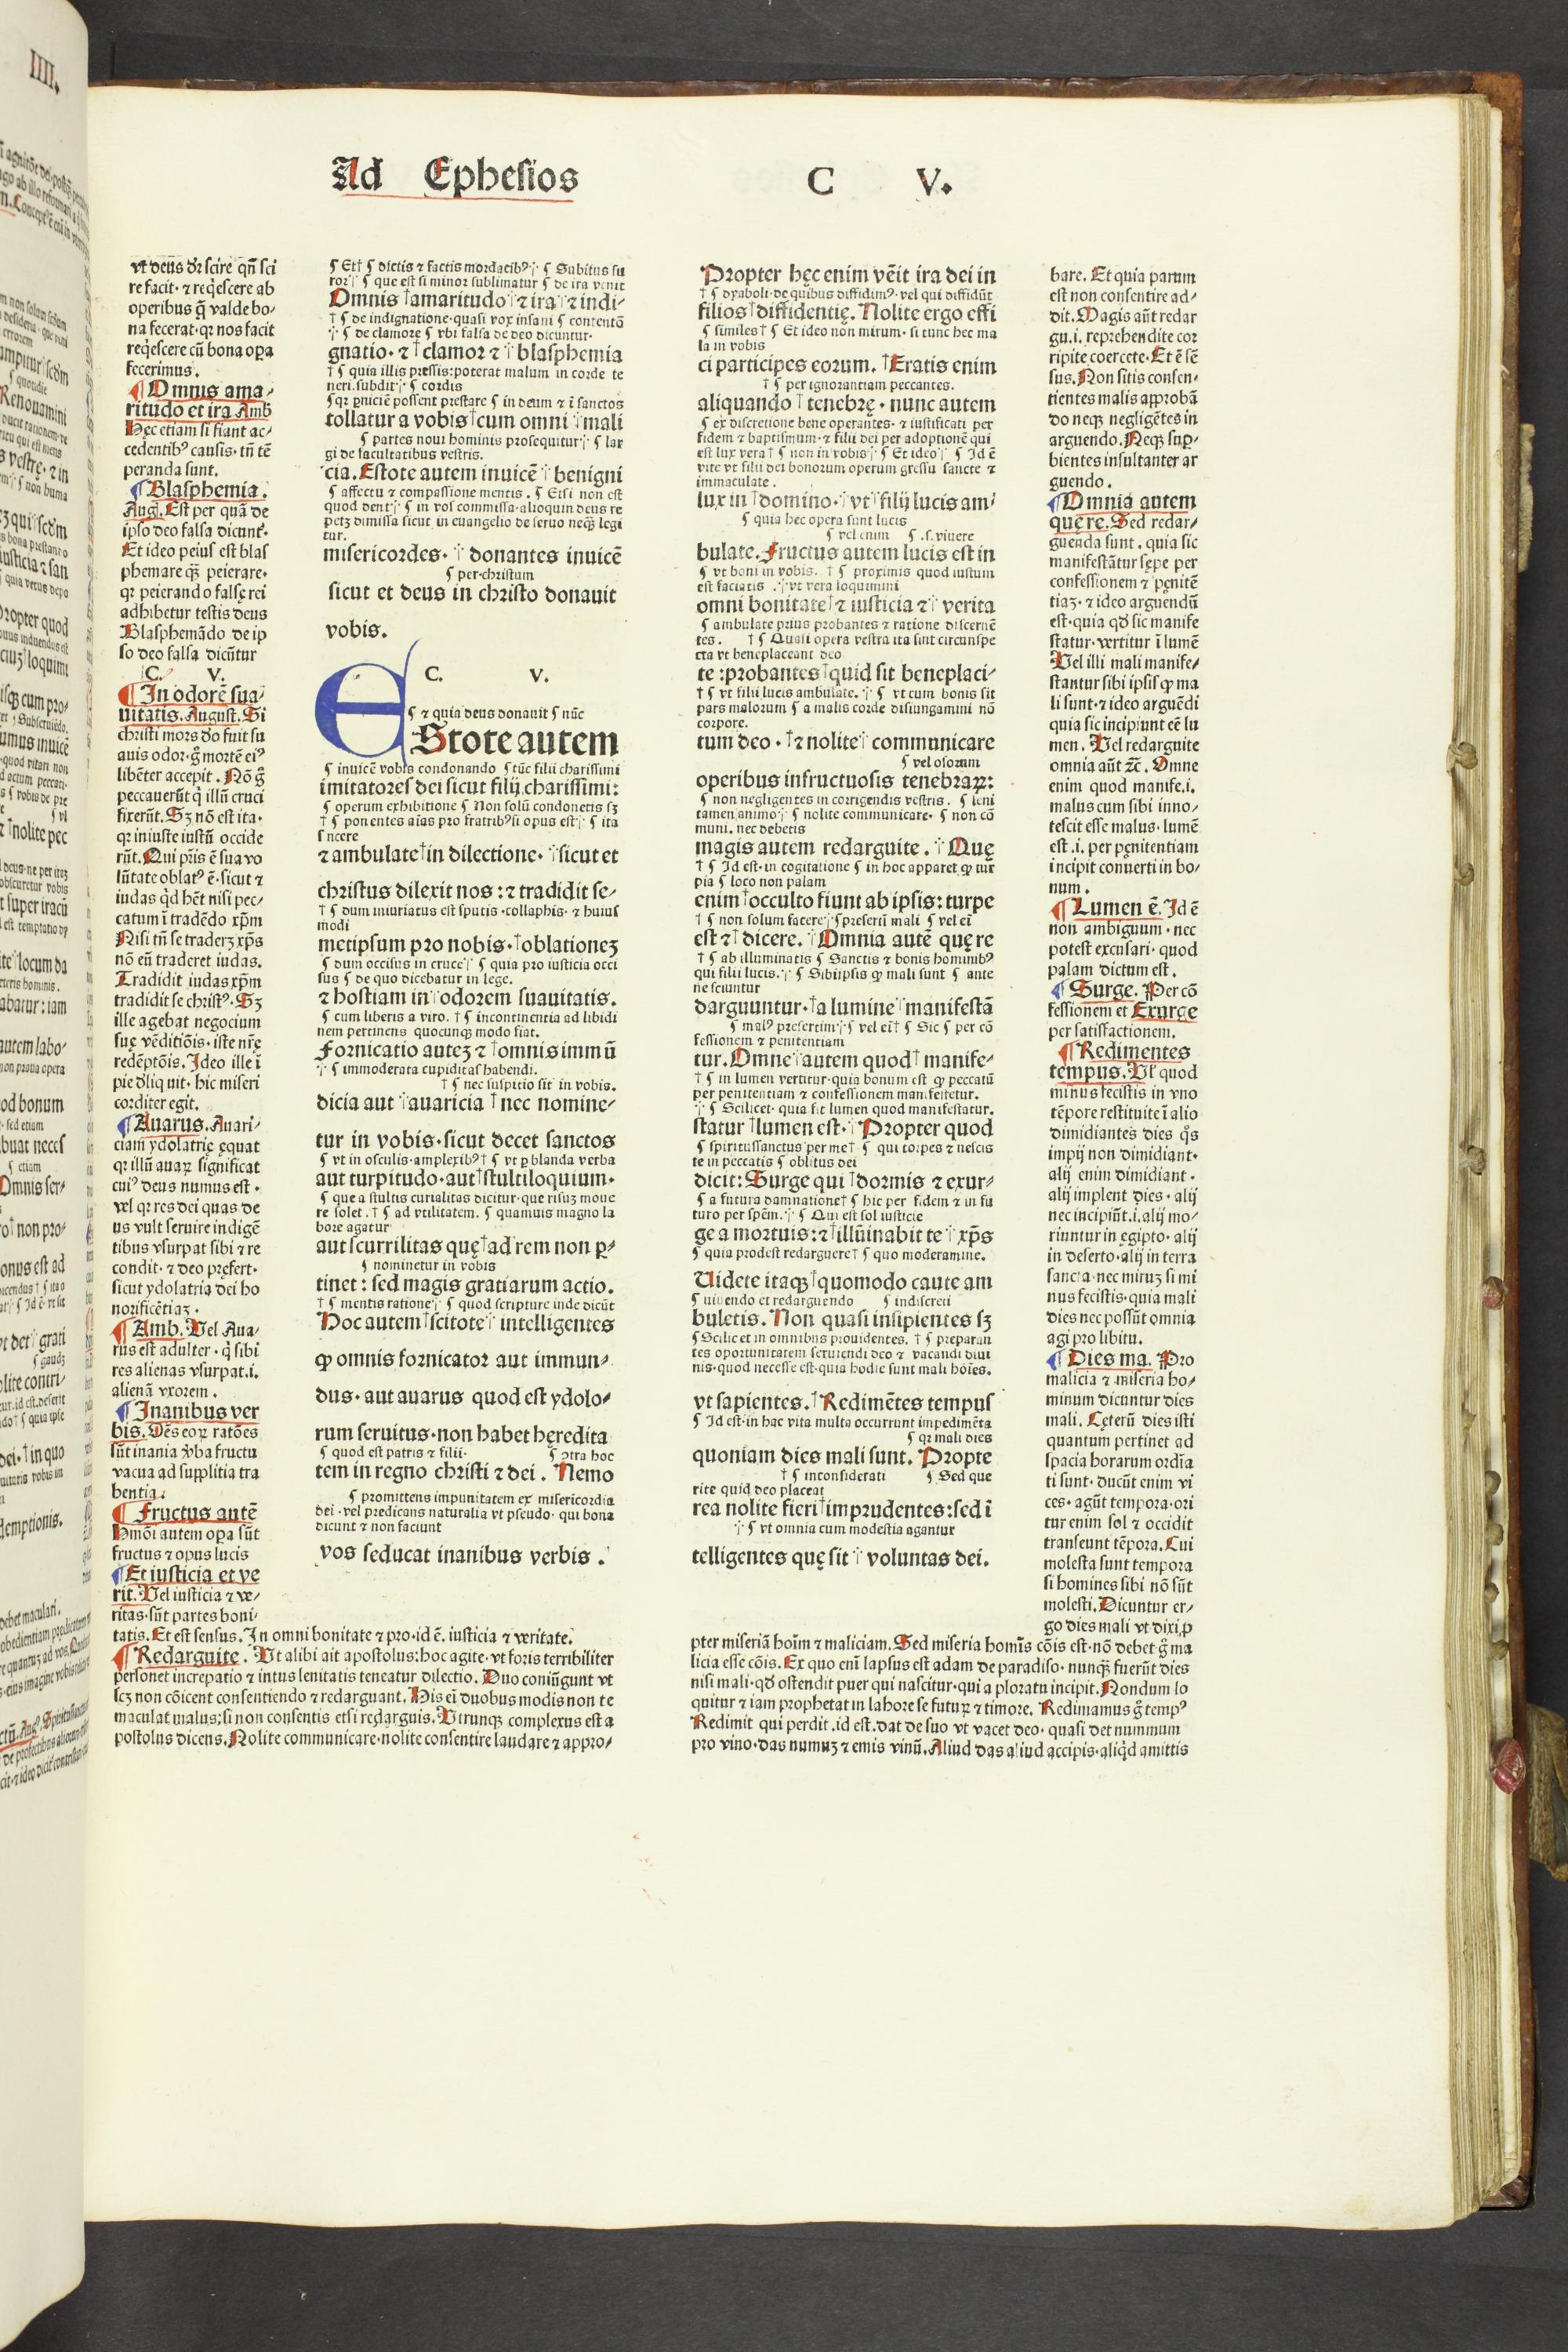 Ad Ephesios
C V.
vt deus dr̄ scire qn̄ sci
re facit· ⁊ reqͥescere ab
operibus q̄ valde bo-
na fecerat·qꝛ nos facit
reqͥescere cū bona oꝑa
fecerimus.
¶ Omnis ama-
ritudo et ira Amb̄
Hęc etiam si fiant ac-
cedentibꝰ causis· tn̄ tē
peranda sunt.
¶ Blasphemia.
Aug. Est per quā de
ipso deo falsa dicunt᷑.
Et ideo peius est blas
phemare qȝ̄ peierare·
qꝛ peierando falsę rei
adhibetur testis deus
Blasphemādo de ip
so deo falsa dicūtur
C. V.
¶ In odorē sua-
uitatis. August. Si
christi mors do fuit su
auis odor·g̊ mortē eiꝰ
libēter accepit. Nō g̊
peccauerūt qͥ illū cruci
fixerūt. Sȝ nō est ita·
qꝛ iniuste iustū occide
rūt. Qui pr̄is ē sua vo
lūtate oblatꝰ ē·sicut ⁊
iudas qͥd hēt nisi pec-
catum ī tradēdo xp̄m
Nisi tn̄ se traderȝ xp̄s
nō eū traderet iudas.
Tradidit iudas xp̄m
tradidit se christꝰ· Sȝ
ille agebat negocium
suę vēditiōis· iste nr̄ę
redēptōis. Ideo ille ī
pie dliquit· hic miseri
corditer egit.
¶ Auarus. Auari-
ciam ydolatrię ęquat
qꝛ illū auaꝝ significat
cuiꝰ deus numus est·
vel qꝛ res dei quas de
us vult seruire indigē
tibus vsurpat sibi ⁊ re
condit· ⁊ deo pręfert·
sicut ydolatria dei ho
norificētiaȝ·
¶ Amb. Vel Aua-
rus est adulter· qͥ sibi
res alienas vsurpat.i.
alienā vxorem.
¶ Inanibus ver
bis. Oēs eoꝝ ratōes
sūt inania v̄ba fructu
vacua ad supplitia tra
hentia.
¶ Fructus autē
Hmōi autem oꝑa sūt
fructus ⁊ opus lucis
¶ Et iusticia et ve
rit. Vel iusticia ⁊ ve-
ritas·sūt partes boni-
tatis. Et est sensus. In omni bonitate ⁊ pro·id ē. iusticia ⁊ veritate.
¶ Redarguite. Vt alibi ait apostolus: hoc agite·vt foris terribiliter
personet increpatio ⁊ intus lenitatis teneatur dilectio. Duo coniūgunt vt
scȝ non cōicent consentiendo ⁊ redarguant. His ei duobus modis non te
maculat malus: si non consentis etsi redarguis. Vtrunqꝫ complexus est a
postolus dicens. Nolite communicare·nolite consentire laudare ⁊ appro-
¶ Et† ¶ dictis ⁊ factis mordacibꝰ ¶ Subitus fu
ror ¶ que est si minor sublimatur ¶ de ira venit
Omnis amaritudo ⁊ ira ⁊ indi-
† ¶ de indignatione·quasi vox insani ¶ contentā
¶ de clamore ¶ vbi falsa de deo dicuntur·
gnatio· ⁊ clamor ⁊ blasphemia
† ¶ quia illis pressis:poterat malum in corde te
neri.subdit ¶ cordis
¶qꝛ ꝑniciē possent prestare ¶ in deum ⁊ ī sanctos
tollatur a vobis cum omni mali
¶ partes noui hominis prosequitur ¶ lar
gi de facultatibus vestris.
cia. Estote autem inuicē benigni
¶ affectu ⁊ compassione mentis. ¶ Etsi non est
quod dent ¶ in vos commissa·alioquin deus re
petȝ dimissa sicut in euangelio de seruo nequā legi
tur.
misericordes· donantes inuicē
¶ per·christum
sicut et deus in christo donauit
vobis.
C. V.
¶ ⁊ quia deus donauit ¶ nūc
EStote autem
¶ inuicē vobis condonando ¶ tūc filii charissimi
imitatores dei sicut filij charissimi:
¶ operum exhibitione ¶ Non solū condonetis sȝ
† ¶ ponentes aīas pro fratribꝰ si opus est ¶ ita
sincere
⁊ ambulate in dilectione· sicut et
christus dilexit nos: ⁊ tradidit se-
† ¶ dum iniuriatus est sputis·collaphis· ⁊ huius
modi
metipsum pro nobis· oblationeȝ
¶ dum occisus in cruce ¶ quia pro iusticia occi
sus ¶ de quo dicebatur in lege.
⁊ hostiam in odorem suauitatis.
¶ cum liberis a viro. † ¶ incontinentia ad libidi
nem pertinens quocunqꝫ modo fiat.
Fornicatio auteȝ ⁊ omnis immū
¶ immoderata cupiditas habendi.
† ¶ nec suspitio sit in vobis.
dicia aut auaricia nec nomine-
tur in vobis·sicut decet sanctos
¶ vt in osculis·amplexibꝰ† ¶ vt ꝑ blanda verba
aut turpitudo·aut stultiloquium·
¶ que a stultis curialitas dicitur·que risuȝ moue
re solet.† ¶ ad vtilitatem. ¶ quamuis magno la
bore agatur
aut scurrilitas quę ad rem non ꝑ-
¶ nominetur in vobis
tinet: sed magis gratiarum actio.
† ¶ mentis ratione ¶ quod scripture inde dicūt
Hoc autem scitote intelligentes
ꝙ omnis fornicator aut immun-
dus·aut auarus quod est ydolo-
rum seruitus·non habet hęredita
¶ quod est patris ⁊ filii· ¶ ꝯtra hoc
tem in regno christi ⁊ dei. Nemo
¶ promittens impunitatem ex misericordia
dei·vel predicans naturalia vt pseudo· qui bona
dicunt ⁊ non faciunt
vos seducat inanibus verbis.
Propter hęc enim vēit ira dei in
† ¶ dyaboli·de quibus diffidimꝰ·vel qui diffidūt
filios diffidentię. Nolite ergo effi
¶ similes† ¶ Et ideo non mirum·si tunc hec ma
la in vobis
ci participes eorum. Eratis enim
† ¶ per ignorantiam peccantes.
aliquando tenebrę·nunc autem
¶ ex discretione bene operantes· ⁊ iustificati per
fidem ⁊ baptismum· ⁊ filii dei per adoptionē qui
est lux vera† ¶ non in vobis ¶ Et ideo ¶ Id ē
vite vt filii dei bonorum operum gressu sancte ⁊
immaculate.
lux in domino· vt filij lucis am-
¶ quia hec opera sunt lucis
¶ vel enim ¶ .s. viuere
bulate. Fructus autem lucis est in
¶ vt boni in vobis. † ¶ proximis quod iustum
est faciatis ¶ vt vera loquimini
omni bonitate ⁊ iusticia ⁊ verita
¶ ambulate prius probantes ⁊ ratione discernē
tes. † ¶ Quasi opera vestra ita sint circunspe
cta vt beneplaceant deo
te: probantes quid sit beneplaci-
† ¶ vt filii lucis ambulate. ¶ vt cum bonis sit
pars malorum ¶ a malis corde disiungamini nō
corpore.
tum deo· ⁊ nolite communicare
¶ vel osorum
operibus infructuosis tenebraꝝ:
¶ non negligentes in corrigendis vestris. ¶ leni
tamen animo ¶ nolite communicare· ¶ non cō
muni. nec debetis
magis autem redarguite. Quę
† ¶ Id est·in cogitatione ¶ in hoc apparet ꝙ tur
pia ¶ loco non palam
enim occulto fiunt ab ipsis: turpe
† ¶ non solum facere ¶ presertī mali ¶ vel ei
est ⁊ dicere. Omnia autē quę re
† ¶ ab illuminatis ¶ Sanctis ⁊ bonis hominibꝰ
qui filii lucis. ¶ Sibiipsis ꝙ mali sunt ¶ ante
nesciuntur
darguuntur·a lumine manifestā
¶ malꝰ presertim ¶ vel ei† ¶ Sic ¶ per cō
fessionem ⁊ penitentiam
tur. Omne autem quod manife-
† ¶ in lumen vertitur·quia bonum est ꝙ peccatū
per penitentiam ⁊ confessionem manifestetur.
¶ Scilicet·quia fit lumen quod manifestatur.
statur lumen est. Propter quod
¶ spiritussanctus per me† ¶ qui torpes ⁊ nescis
te in peccatis ¶ oblitus dei
dicit: Surge qui dormis ⁊ exur-
¶ a futura damnatione† ¶ hic per fidem ⁊ in fu
turo per spēm. ¶ Qui est sol iusticie
ge a mortuis: ⁊ illūinabit te xp̄s
¶ quia prodest redarguere† ¶ quo moderamine.
Uidete itaqꝫ quomodo caute am
¶ viuendo et redarguendo ¶ indiscreti
buletis. Non quasi insipientes sȝ
¶ Scilicet in omnibus prouidentes. † ¶ preparan
tes oportunitatem seruiendi deo ⁊ vacandi diui
nis·quod necesse est·quia hodie sunt mali hoīes.
vt sapientes. Redimētes tempus
¶ Id est·in hac vita multa occurrunt impedimēta
¶ qꝛ mali dies
quoniam dies mali sunt. Propte
† ¶ inconsiderati ¶ Sed que
rite quid deo placeat
rea nolite fieri imprudentes: sed ī
¶ vt omnia cum modestia agantur
telligentes quę sit voluntas dei.
bare. Et quia parum
est non consentire ad-
dit. Magis aūt redar
gu.i. reprehendite cor
ripite coercete· Et ē sē
sus. Non sitis consen-
tientes malis approbā
do neqꝫ negligētes in
arguendo. Neqꝫ suꝑ-
bientes insultanter ar
guendo.
¶ Omnia autem
que re. Sed redar-
guenda sunt. quia sic
manifestātur sępe per
confessionem ⁊ pęnitē
tiaȝ· ⁊ ideo arguendū
est·quia qd sic manife
statur·vertitur ī lumē
Vel illi mali manife-
stantur sibi ipsis ꝙ ma
li sunt· ⁊ ideo arguēdi
quia sic incipiunt eē lu
men. Vel redarguite
omnia aūt ⁊c̄. Omne
enim quod manife.i.
malus cum sibi inno-
tescit esse malus·lumē
est.i. per pęnitentiam
incipit conuerti in bo-
num.
¶ Lumen ē. Id ē
non ambiguum·nec
potest excusari·quod
palam dictum est.
¶ Surge. Per cō
fessionem et Exurge
per satisfactionem.
¶ Redimentes
tempus. Vl' quod
minus fecistis in vno
tēpore restituite ī alio
dimidiantes dies qͦs
impij non dimidiant·
alij enim dimidiant·
alij implent dies· alij
nec incipiūt.i.alij mo-
riuntur in ęgipto·alij
in deserto·alij in terra
sancta·nec miruȝ si mi
nus fecistis·quia mali
dies nec possūt omnia
agi pro libitu.
¶ Dies ma. Pro
malicia ⁊ miseria ho-
minum dicuntur dies
mali. Cęterū dies isti
quantum pertinet ad
spacia horarum ordīa
ti sunt·ducūt enim vi
ces·agūt tempora·ori
tur enim sol ⁊ occidit
transeunt tēpora. Cui
molesta sunt tempora
si homines sibi nō sūt
molesti. Dicuntur er-
go dies mali vt dixi ꝓ
pter miseriā hoīm ⁊ maliciam. Sed miseria homīs cōis est·nō debet g̊ ma
licia esse cōis. Ex quo enī lapsus est adam de paradiso·nunqȝ̄ fuerūt dies
nisi mali·qd ostendit puer qui nascitur·qui a ploratu incipit. Nondum lo
quitur ⁊ iam prophetat in labore se futuꝝ ⁊ timore. Redimamus g̊ tempꝰ
Redimit qui perdit.id est.dat de suo vt vacet deo·quasi det nummum
pro vino·das numuȝ ⁊ emis vinū. Aliud das aliud accipis·aliqͥd amittis